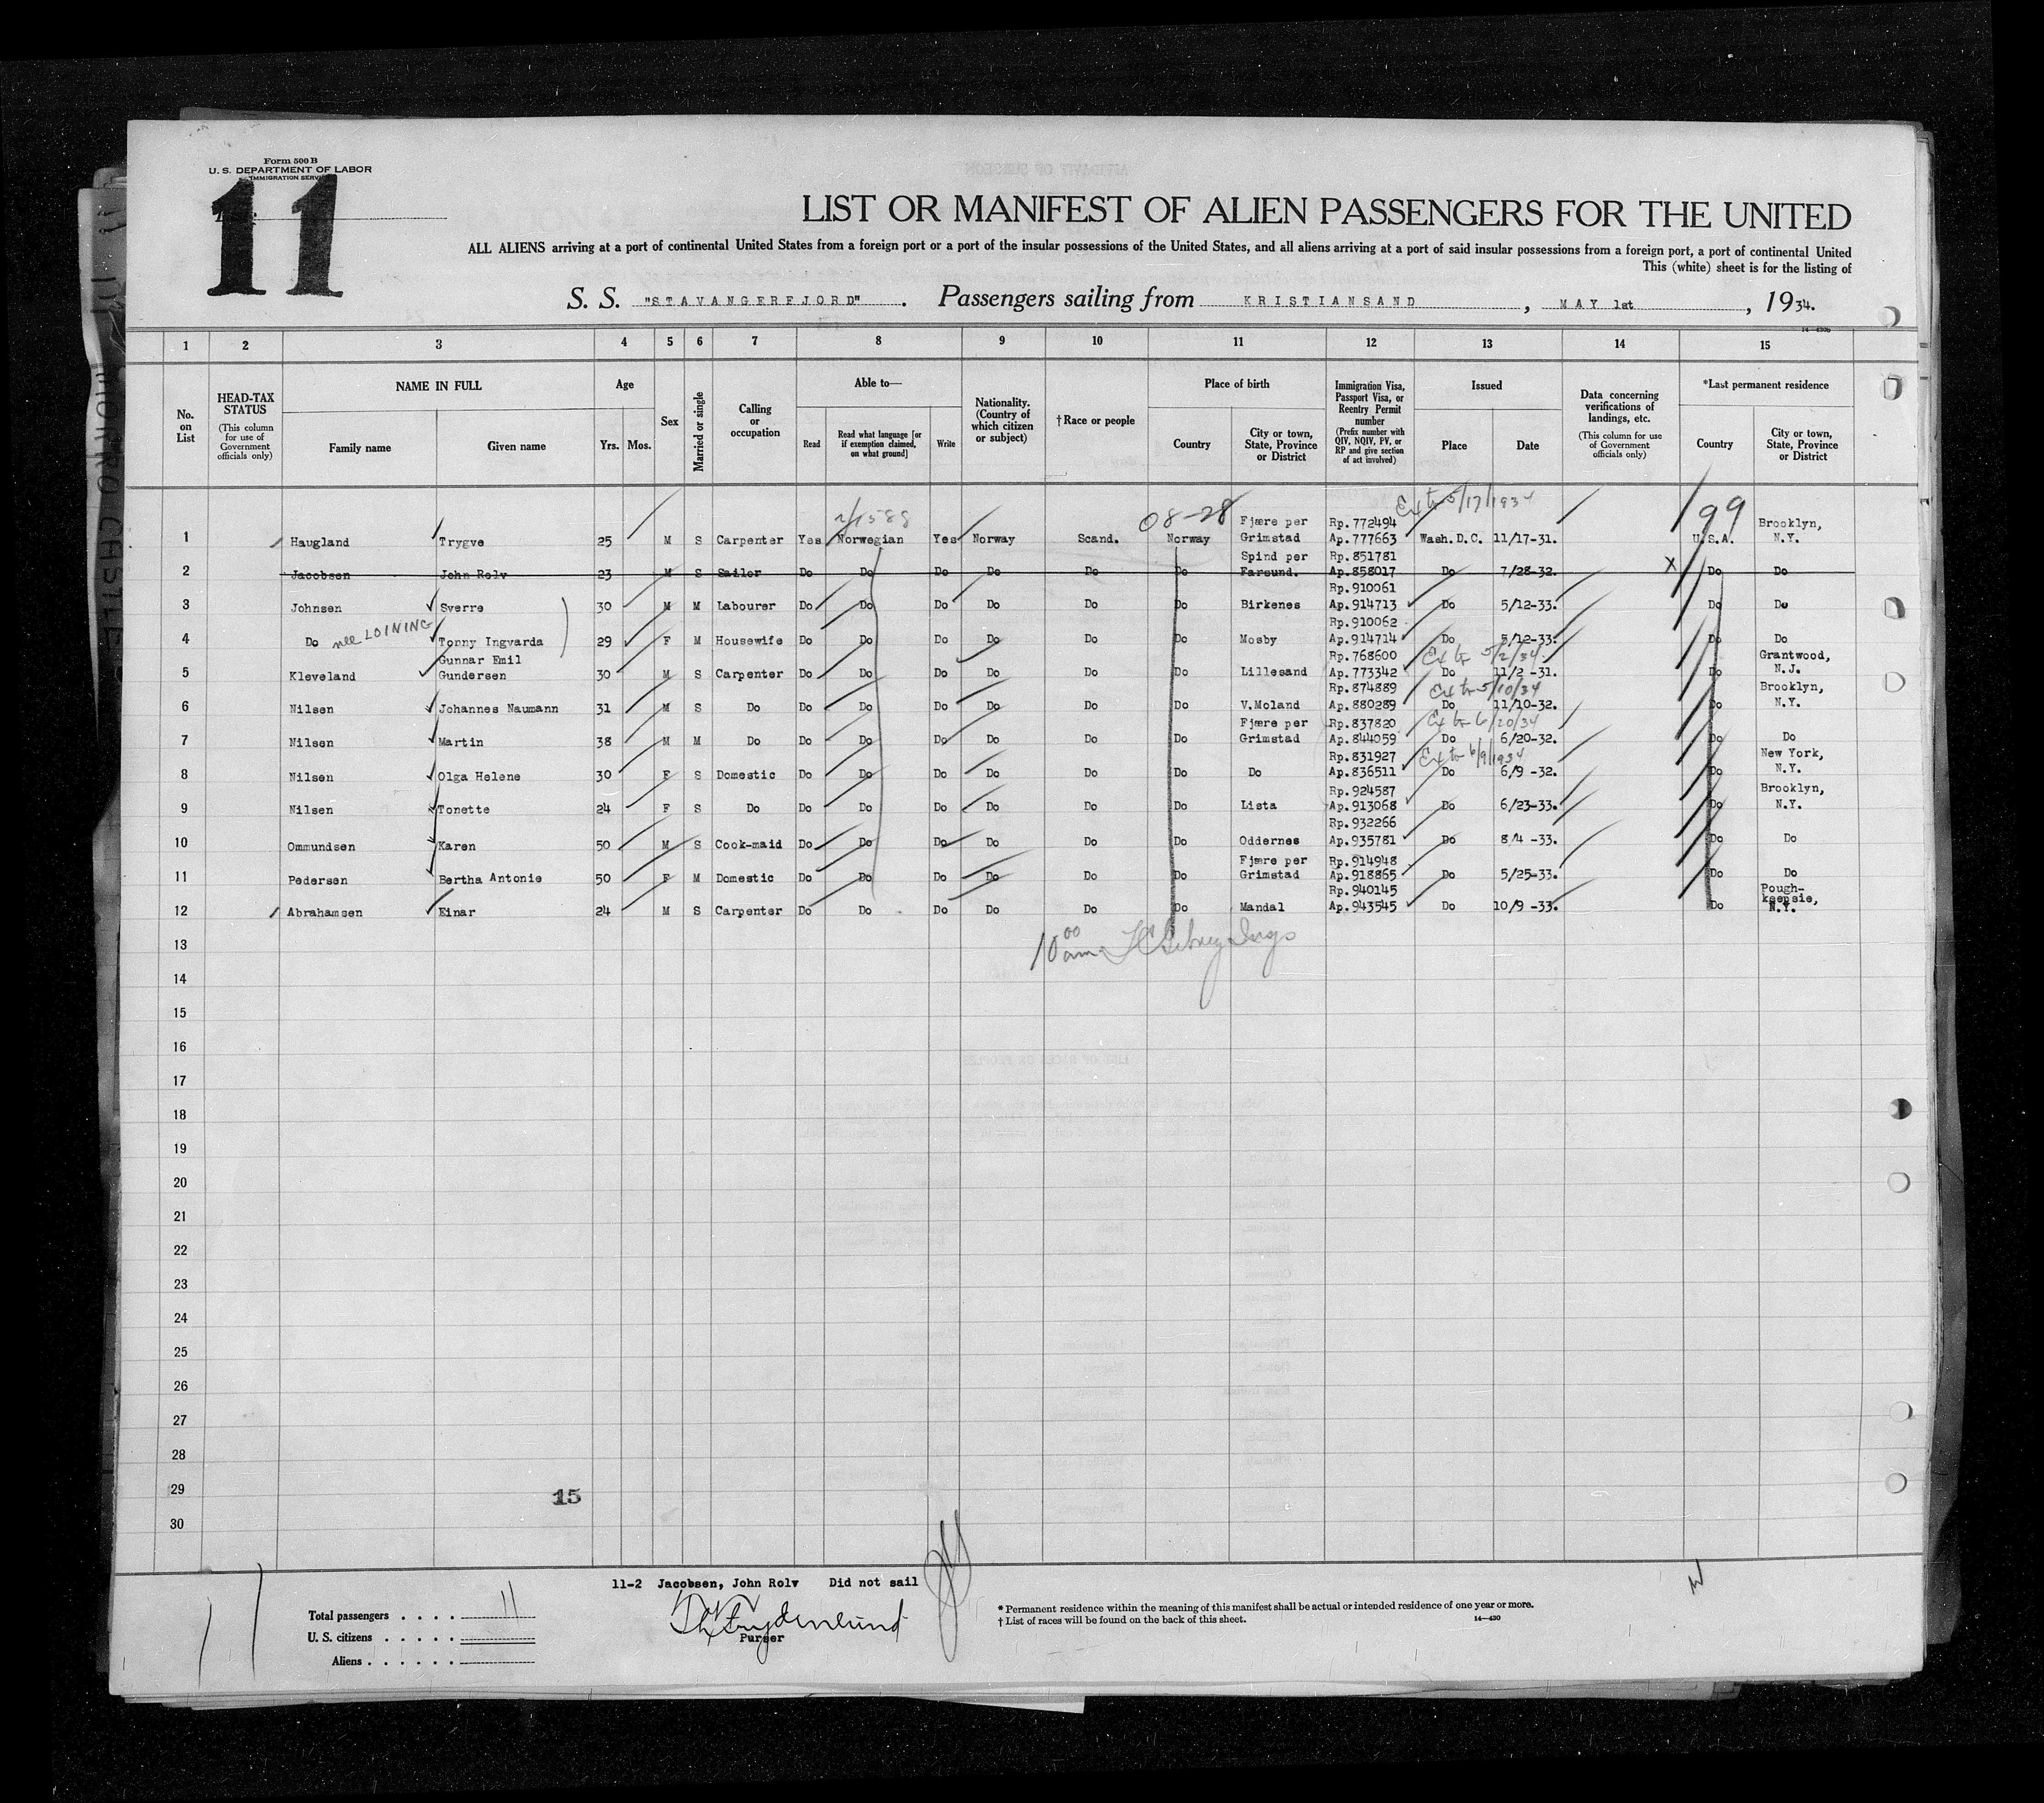 Form 500 B
U. S. DEPARTMENT OF LABOR
IMMIGRATION SERVICE
11
LIST OR MANIFEST OF ALIEN PASSENGERS FOR THE UNITED
ALL ALIENS arriving at a port of continental United States from a foreign port or a port of the insular possessions of the United States, and all aliens arriving at a port of said insular possessions from a foreign port, a port of continental United
This (white) sheet is for the listing of
S. S. "STAVANGERFJORD". Passengers sailing from KRISTIANSAND, MAY 1st, 1934.
1 2 3 4 5 6 7 8 9 10 11 12 13 14 15
No. on List
HEAD-TAX STATUS (This column for use of Government officials only)
NAME IN FULL Family name Given name
Age Yrs. Mos.
Sex
Married or single
Calling or occupation
Able to— Read Read what language [or if exemption claimed, on what ground] Write
Nationality. (Country of which citizen or subject)
† Race or people
Place of birth Country City or town, State, Province or District
Immigration Visa, Passport Visa, or Reentry Permit number (Prefix number with QIV, NQIV, PV, or RP and give section of act involved)
Issued Place Date
Data concerning verifications of landings, etc. (This column for use of Government officials only)
*Last permanent residence Country City or town, State, Province or District
08-28 Ext to 5/17/1934 99
1 Haugland Trygve 25 M S Carpenter Yes Norwegian Yes Norway Scand. Norway Fjære per Grimstad Rp. 772494 Ap. 777663 Wash. D.C. 11/17-31. U.S.A. Brooklyn, N.Y.
2 Jacobsen John Rolv 23 M S Sailor Do Do Do Do Do Do Spind per Farsund. Rp. 851781 Ap. 858017 Do 7/28-32. X Do Do
3 Johnsen Sverre 30 M M Labourer Do Do Do Do Do Do Birkenes Rp. 910061 Ap. 914713 Do 5/12-33. Do Do
4 Do nee LOINING Tonny Ingvarda 29 F M Housewife Do Do Do Do Do Do Mosby Rp. 910062 Ap. 914714 Do 5/12-33. Do Do
5 Kleveland Gunnar Emil Gundersen 30 M S Carpenter Do Do Do Do Do Do Lillesand Rp. 768600 Ap. 773342 Ext to 5/2/34. Do 11/2 -31. Do Grantwood, N.J.
6 Nilsen Johannes Naumann 31 M S Do Do Do Do Do Do Do V.Moland Rp. 874889 Ap. 880289 Ext to 5/10/34 Do 11/10-32. Do Brooklyn, N.Y.
7 Nilsen Martin 38 M M Do Do Do Do Do Do Do Fjære per Grimstad Rp. 837820 Ap. 844059 Ext to 6/20/34 Do 6/20-32. Do Do
8 Nilsen Olga Helene 30 F S Domestic Do Do Do Do Do Do Do Rp. 831927 Ap. 836511 Ext to 6/9/1934 Do 6/9 -32. Do New York, N.Y.
9 Nilsen Tonette 24 F S Do Do Do Do Do Do Do Lista Rp. 924587 Ap. 913068 Do 6/23-33. Do Brooklyn, N.Y.
10 Ommundsen Karen 50 M S Cook-maid Do Do Do Do Do Do Oddernes Rp. 932266 Ap. 935781 Do 8/4 -33. Do Do
11 Pedersen Bertha Antonie 50 F M Domestic Do Do Do Do Do Do Fjære per Grimstad Rp. 914948 Ap. 918865 Do 5/25-33. Do Do
12 Abrahamsen Einar 24 M S Carpenter Do Do Do Do Do Do Mandal Rp. 940145 Ap. 943545 Do 10/9 -33. Do Pough-keepsie, N.Y.
13 10 00 am
14
15
16
17
18
19
20
21
22
23
24
25
26
27
28
29 15
30
11-2 Jacobsen, John Rolv Did not sail
Total passengers . . . . 11
U. S. citizens . . . . .
Aliens . . . . . .
Purser
* Permanent residence within the meaning of this manifest shall be actual or intended residence of one year or more.
† List of races will be found on the back of this sheet. 14—430
MORRO CASTLE